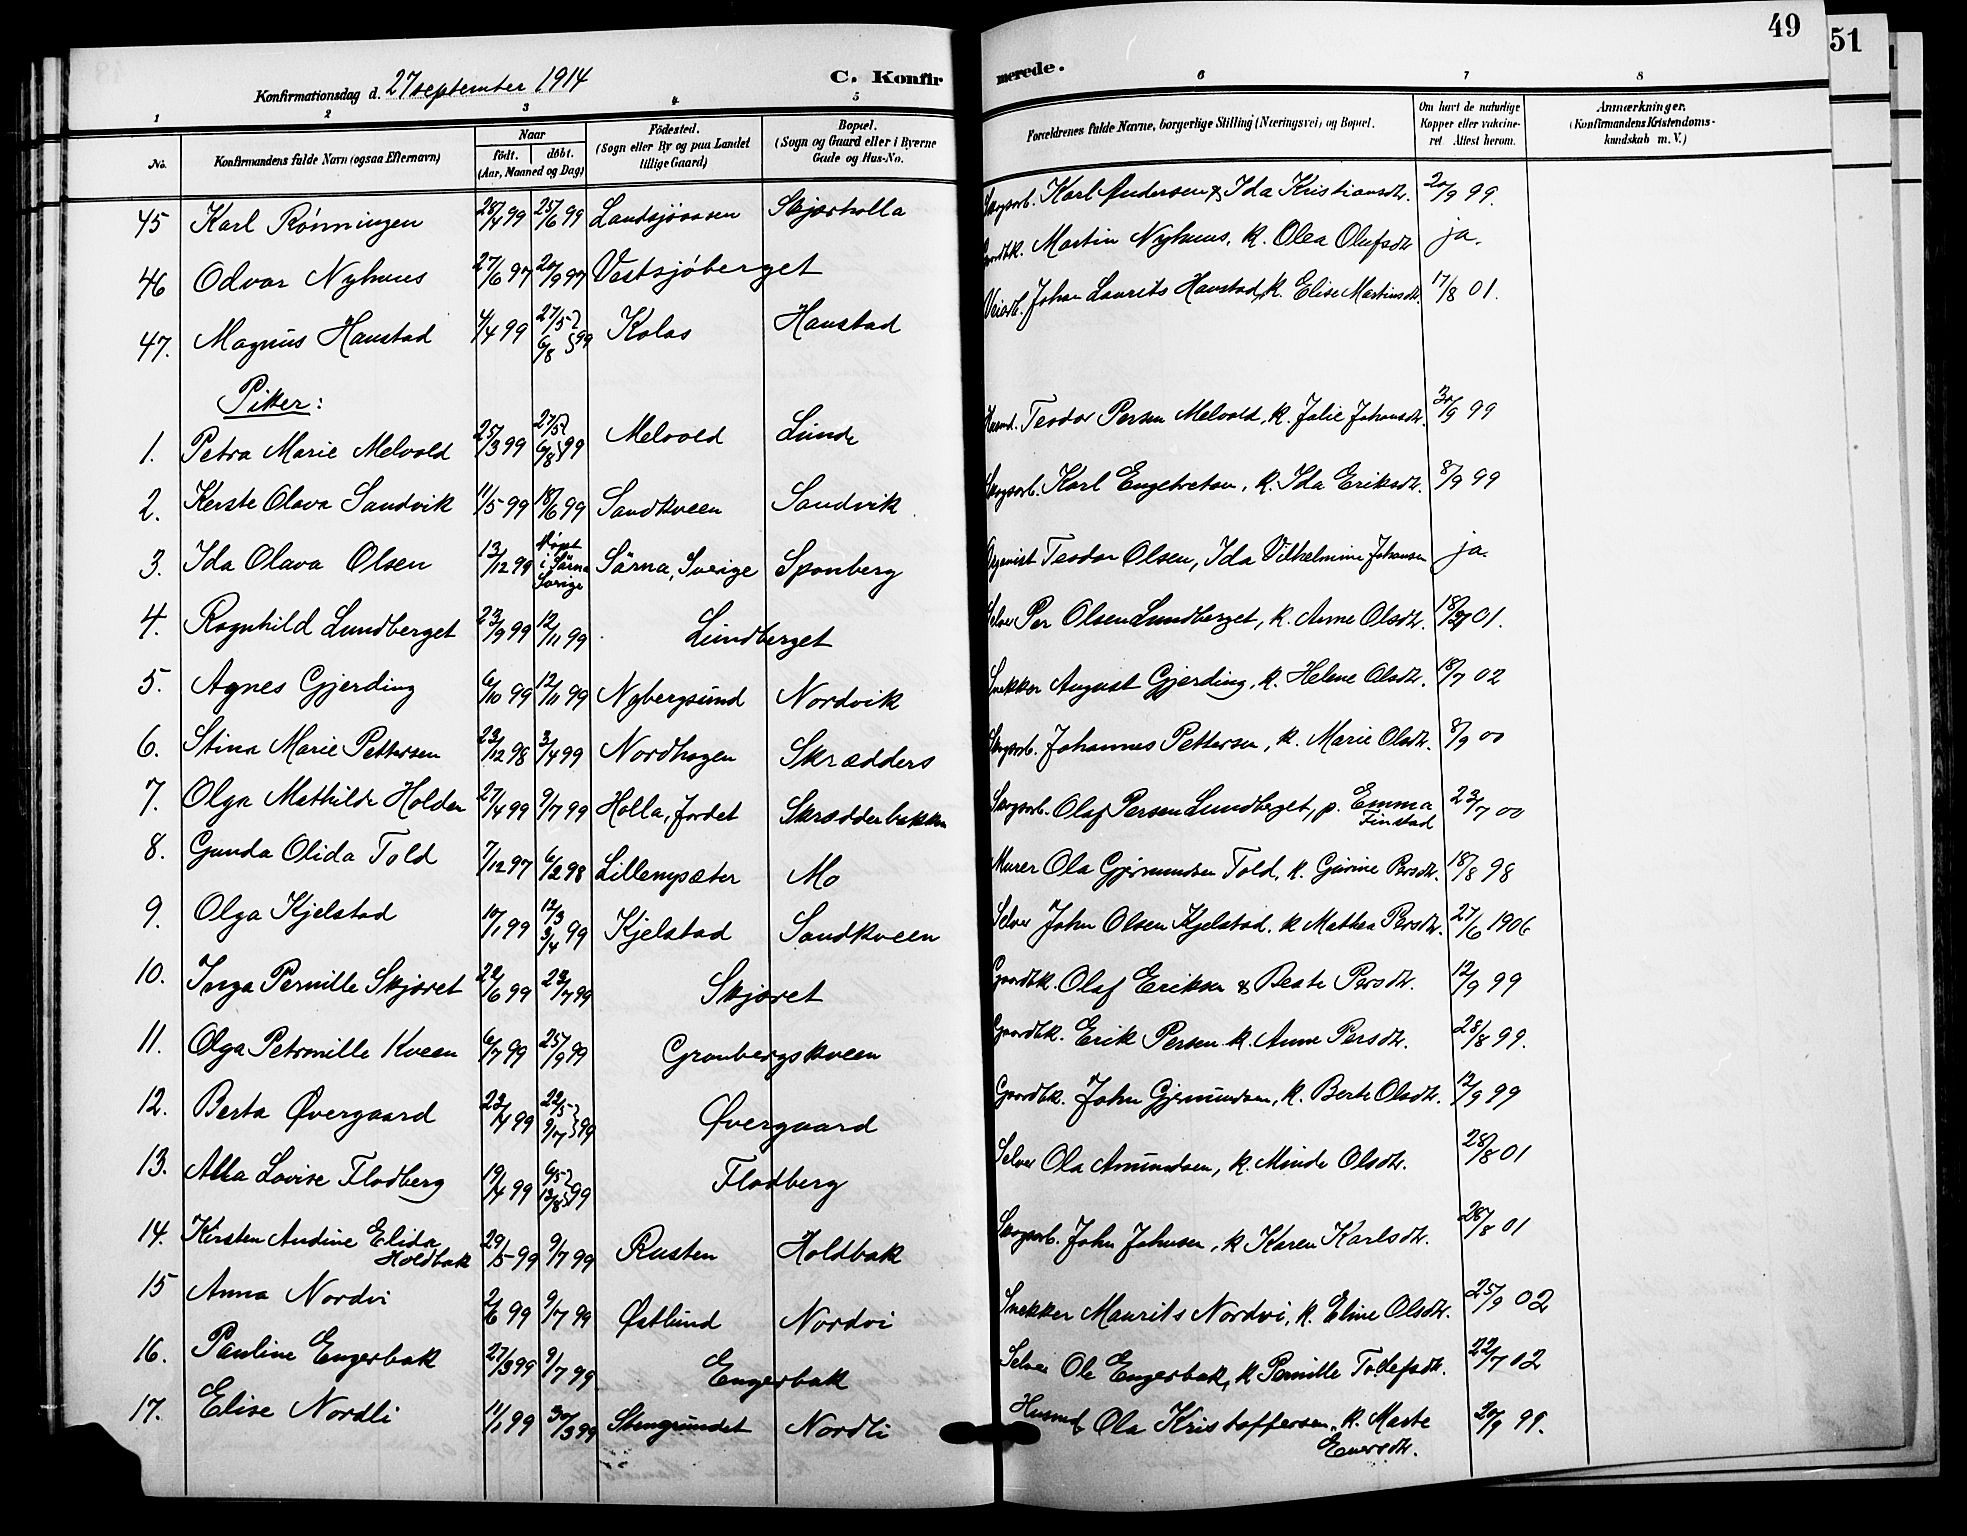 49
51
Konfirmationsdag d. 27 september 1914
C. Konfirmerede.
1 2 3 4 5 6 7 8
No. Konfirmandens fulde Navn (ogsaa Efternavn) Naar født. døbt. (Aar, Maaned og Dag) Fødested. (Sogn eller By og paa Landet tillige Gaard) Bopæl. (Sogn og Gaard eller i Byerne Gade og Hus-No. Forældrenes fulde Navne, borgerlige Stilling (Næringsvei) og Bopæl. Om havt de naturlige Kopper eller vaccineret Attest herom. Anmærkninger. (Konfirmandens Kristendomskundskab m. V.)
45 Karl Rønningen 28/4 99 25/6 99 Landsjøaasen Skjærholla Skogsarb. Karl Andersen & Ida Kristiansdtr. 20/9 99.
46 Odvar Nyhuus 27/6 97 20/9 97 Vestsjøberget Gaardbk. Martin Nyhuus, k. Olea Olufsdtr ja.
47. Magnus Haustad 4/4 99 27/5 6/8 } 99 Kolos Haustad Veiarb. Johan Laurits Haustad, k. Elise Martinsdtr. 17/8 01.
Piker:
1. Petra Marie Melvold 25/3 99 27/5 6/8 } 99 Melvold Lunde Husmd. Teodor Persen Melvold, k. Julie Johansdtr. 30/9 99
2. Kerste Olava Sandvik 11/5 99 18/6 99 Sandkveen Sandvik Skogsarb. Karl Engebretsen, k. Ida Eriksdtr. 8/9 99
3. Ida Olava Olsen 13/12 99 Døpt i Särna Sverige Särna, Sverige Sponberg Teodor Olsen, Ida Vilhelmine Johansen ja.
4. Ragnhild Lundberget 23/9 99 12/11 99 Lundberget Selvei Per Olsen Lundberget, k. Anne Olsdtr. 01.
5. Agnes Gjerding 6/10 99 12/11 99 Nybergsund Nordvik Snekker August Gjerding, k. Helene Olsdtr. 18/7 02
6. Stina Marie Pettersen 23/12 98 3/4 99 Nordhagen Skrædders Skogsarb. Johannes Pettersen, k. Marie Olsdtr. 8/9 00
7. Olga Mathilde Holden 27/4 99 9/7 99 Holla, Jordet Skrædderbakken Skogsarb. Olaf Persen Lundberget, p. Emma Finstad 23/7 00
8. Gunda Olida Told 7/12 97 6/2 98 Lillemysæter Mo Murer Ola Gjermundsen Told, k. Gurine Persdtr. 18/8 98
9. Olga Kjelstad 10/1 99 12/3 3/4 99 Kjelstad Sandkveen Selvei John Olsen Kjelstad. k Mathea Persdtr. 27/6 1906
10. Inga Pernille Skjæret 22/6 99 23/7 99 Skjæret Gaardbk. Olaf Eriksen & Beate Persdtr. 12/9 99
11. Olga Petronille Kveen 6/7 99 25/9 99 Gronbergskveen Gaardbk. Erik Persen k. Anne Persdtr. 28/8 99.
12. Berta Øvergaard 23/4 99 22/5 9/7 } 99 Øvergaard Gaardbk. John Gjermundsen, k. Berte Olsdtr. 12/9 99
13. Alta Lovise Flodberg 19/4 99 6/5 13/8 } 99 Flodberg Selvei Ola Amundsen, k. Minda Olsdtr. 28/8 01
14. Kirsten Andine Elida Holdbak 29/5 99 9/7 99 Rusten Holdbak Skogsarb. John Johnsen, k Karen Karlsdtr. 28/8 01
15 Anna Nordvi 2/6 99 9/7 99 Østlund Nordvi Snekker Maurits Nordvi, k. Eline Olsdtr. 25/9 02
16. Pauline Engerbak 27/3 99 9/7 99 Engerbak Selvei Ole Engerbak, k Pernille Tollefsdtr. 22/7 02
17. Elise Nordli 11/1 99 30/3 99 Stengrundet Nordli Husmd Ola Kristoffersen, k. Marte Enersdtr. 20/9 99.